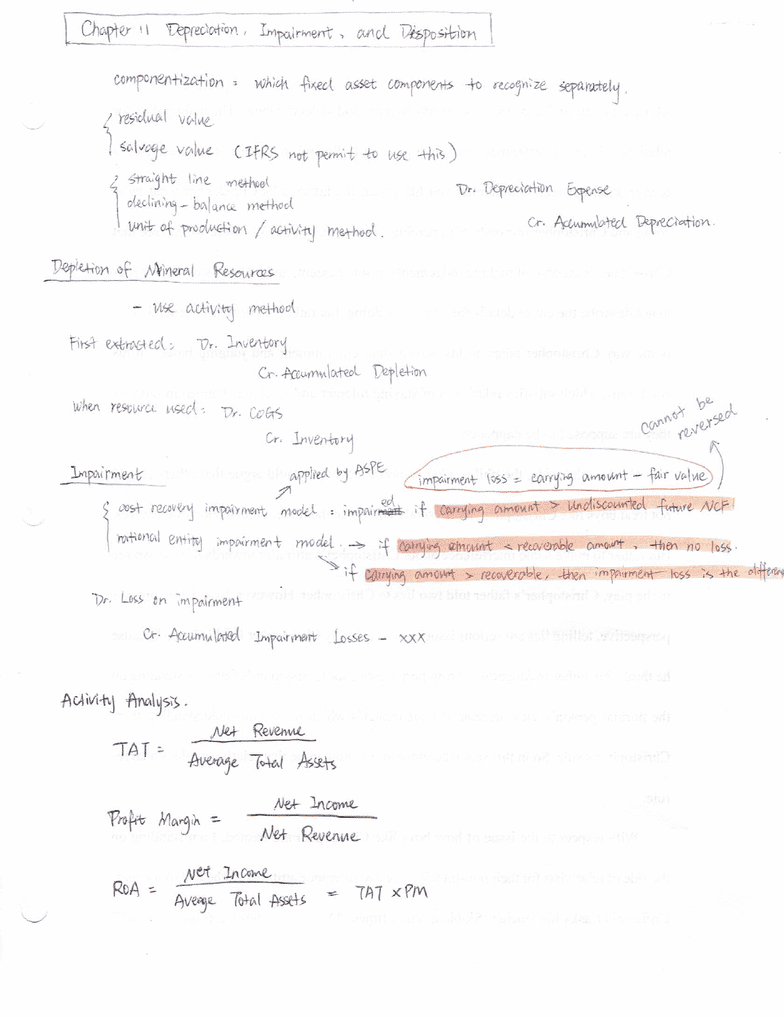 Chapter 11 Depreciation, Impairment, and Disposition
componentization = which fixed asset components to recognize separately.
residual value
salvage value (IFRS not permit to use this)
straight line method
declining-balance method
unit of production / activity method.
Dr. Depreciation Expense
Cr. Accumulated Depreciation.
Depletion of Mineral Resources
- use activity method
First extracted: Dr. Inventory
Cr. Accumulated Depletion
when resource used: Dr. COGS
Cr. Inventory
cannot be
reversed
Impairment
applied by ASPE
impairment loss = carrying amount - fair value
cost recovery impairment model: impaired if carrying amount > undiscounted future NCF.
rational entity impairment model. → if carrying amount < recoverable amount, then no loss.
if carrying amount > recoverable, then impairment loss is the
Dr. Loss on impairment
Cr. Accumulated Impairment Losses - xxx
Activity Analysis.
TAT = Net Revenue / Average Total Assets
Profit Margin = Net Income / Net Revenue
ROA = Net Income / Average Total Assets = TAT x PM